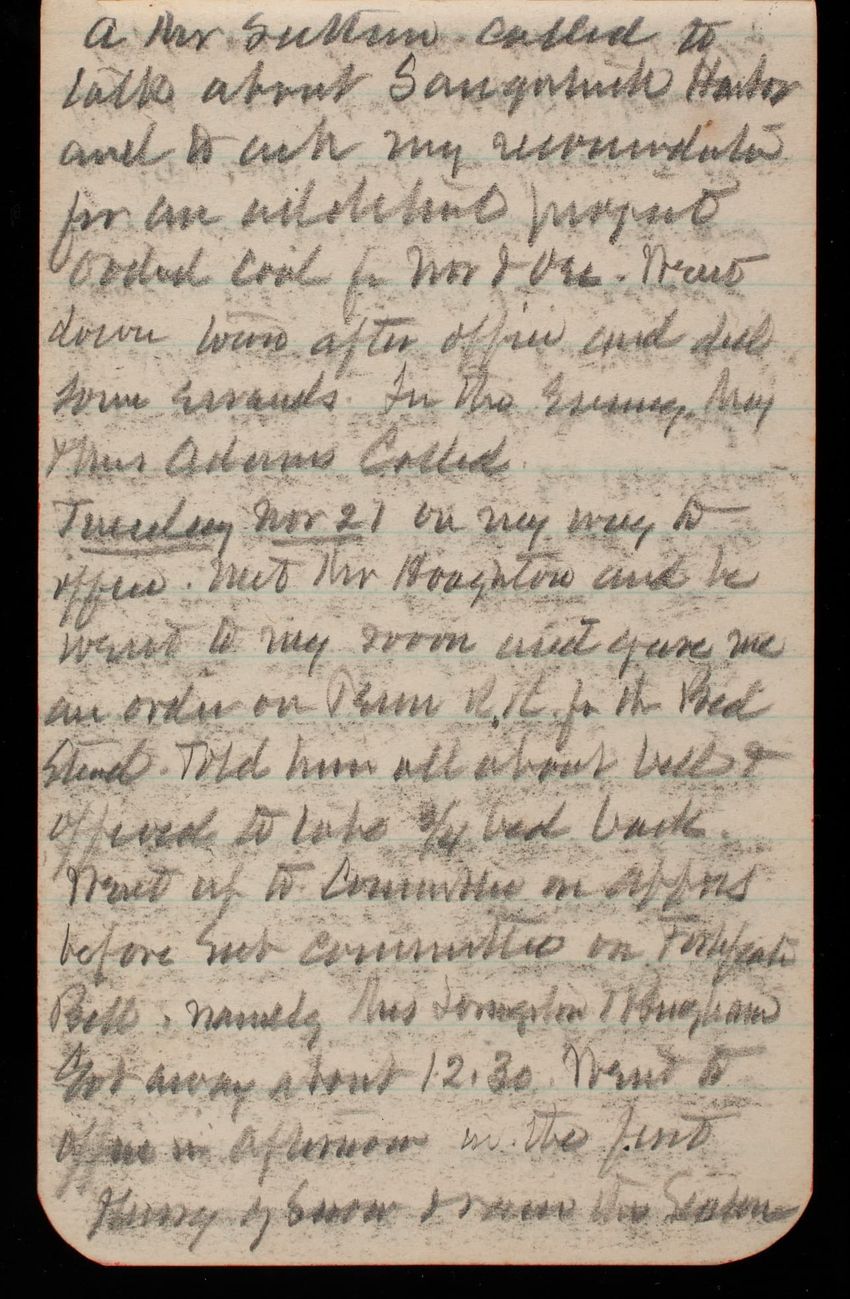 A Mr Sutton called to
talk about Saugatuck Harbor
and to ask my recomndatn
for an additional project
Orded coal for Nov & Dec. Went
down town after office and did
some errands. In the Evening Maj
& Mrs Adams Called
Tuesday Nov 21 on my way to
office. Met Mr Houghton and he
went to my room and gave me
an order on Penn R.R. for the Bed
Stead. Told him all about bed &
offered to take 3/4 bed back.
Went up to Committee on Appros
before Sub committee on Fortificatn
Bill, namely Mrs Livingston & Bingham
Got away about 12.30. Went to
office in afternoon in the first
flurry of Snow & rain this Season